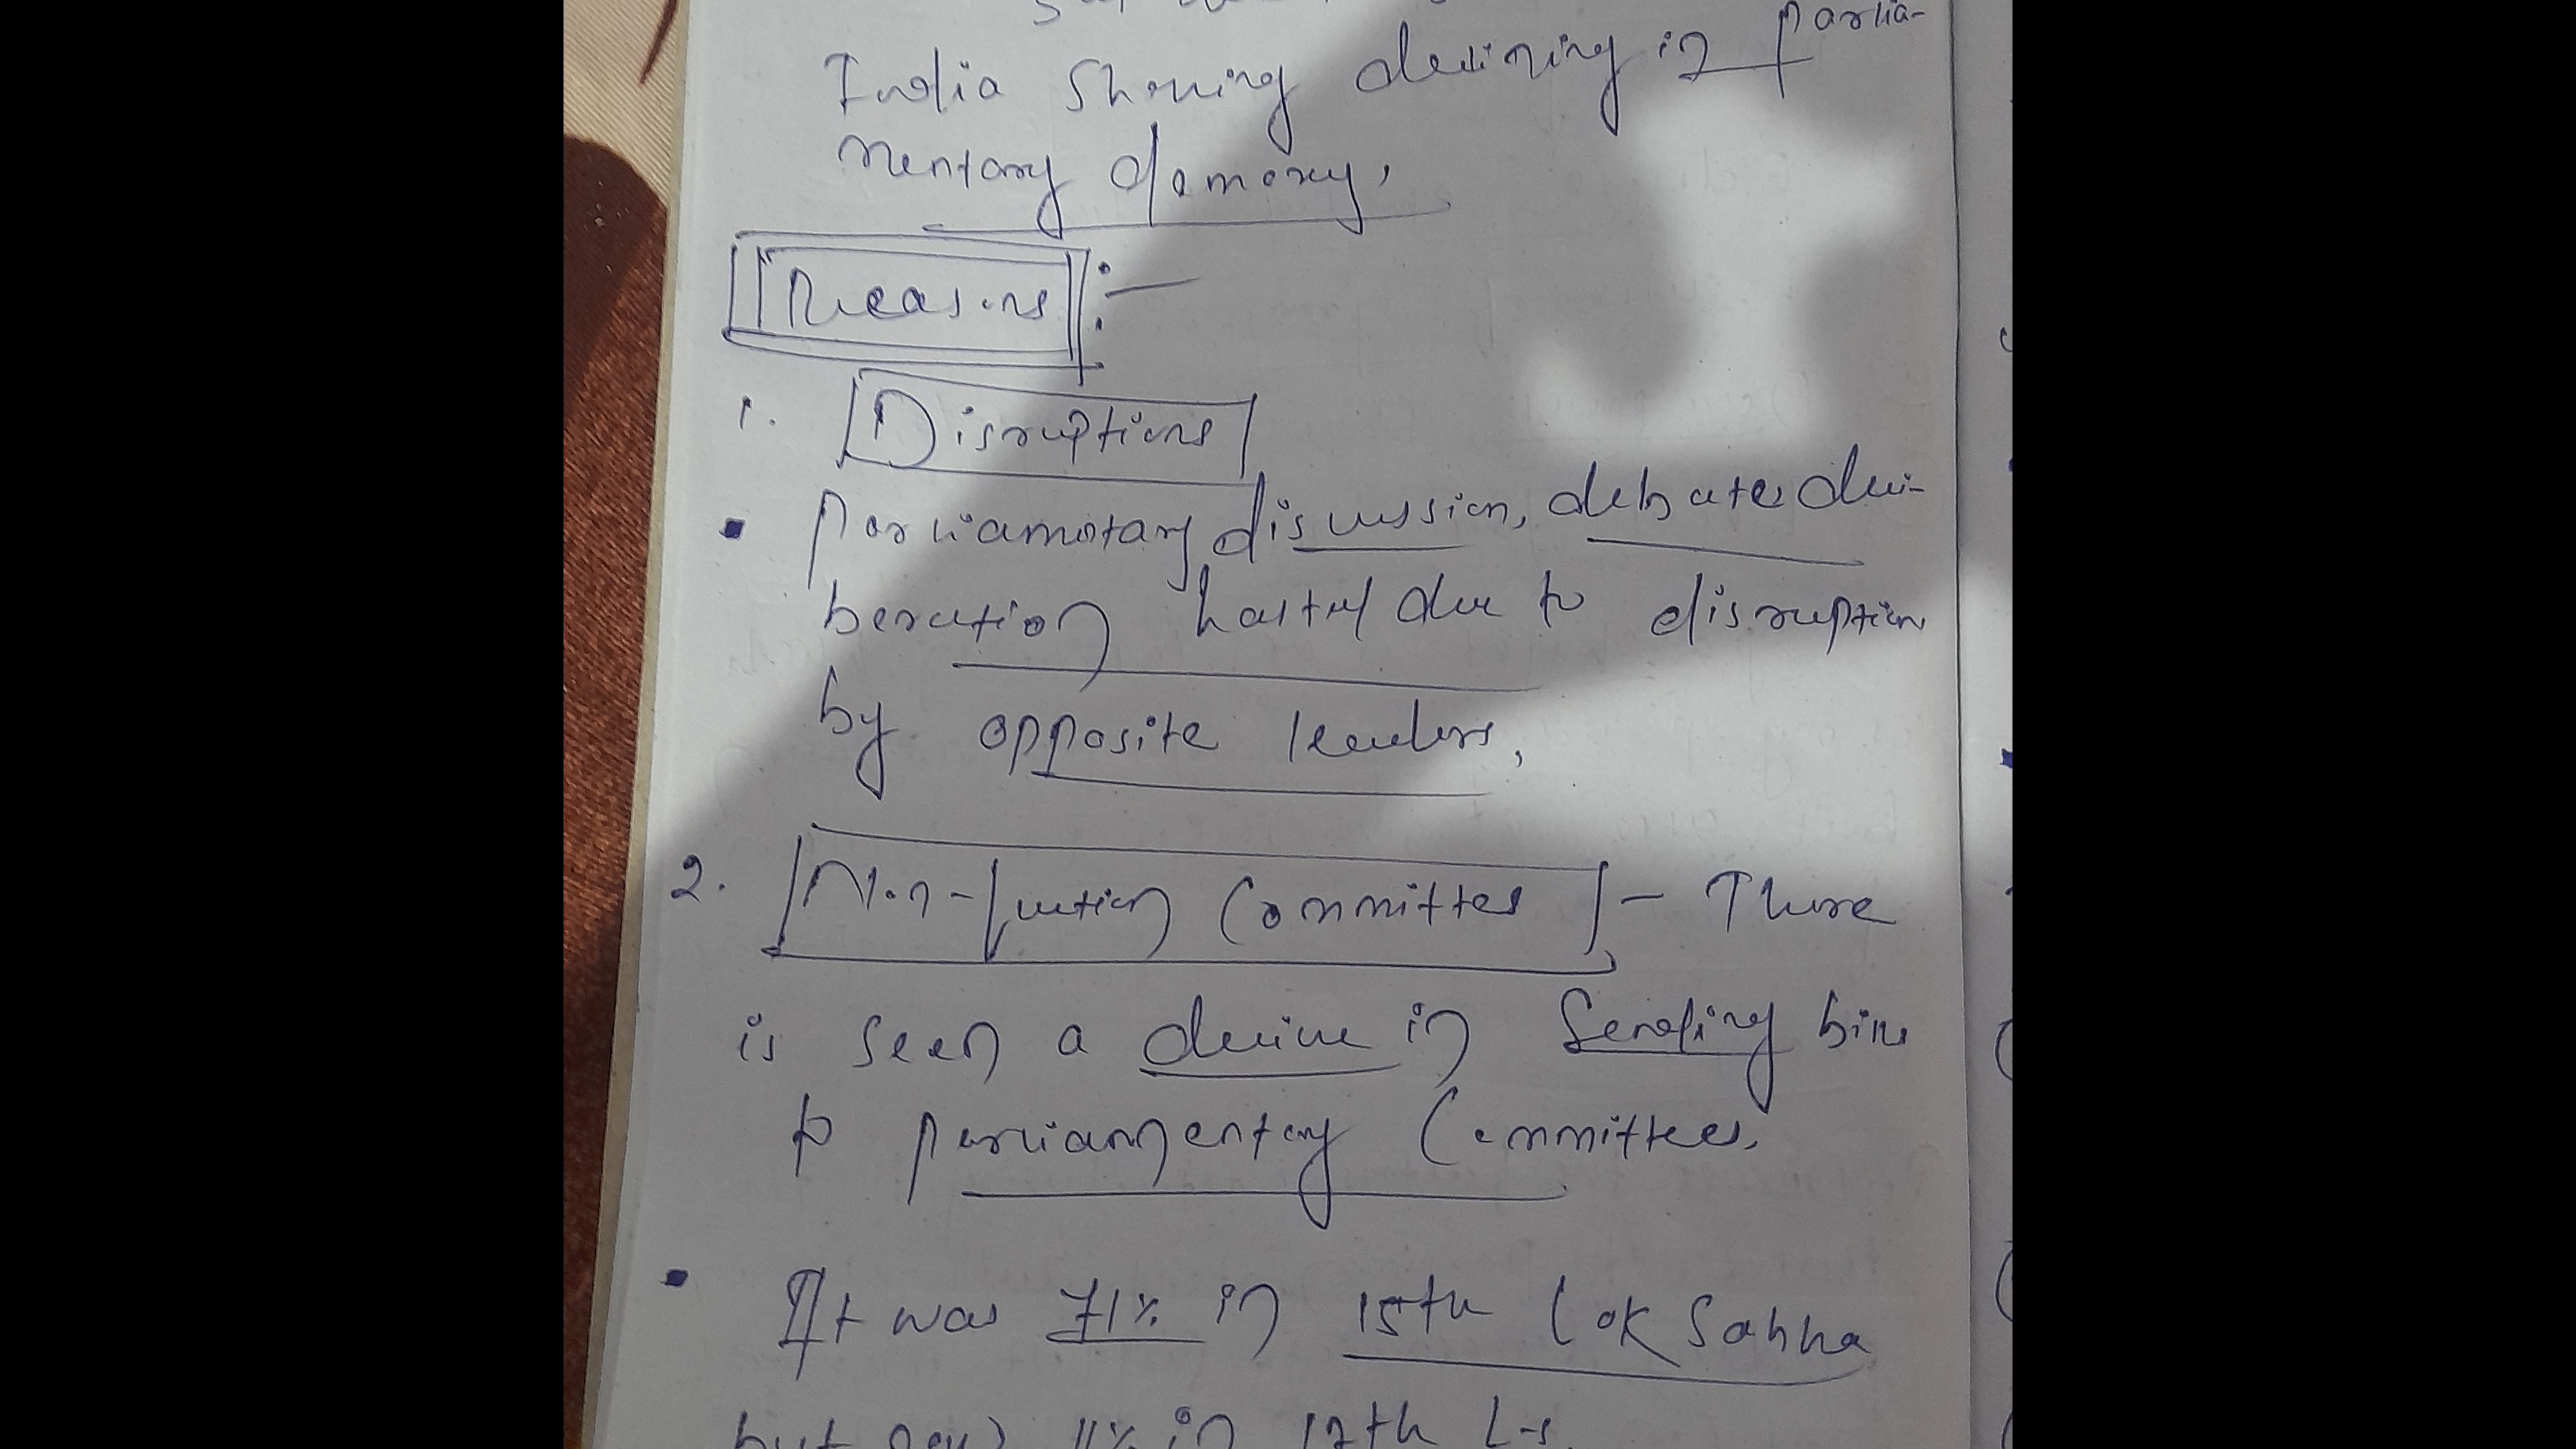 Parlia-
India Showing declining in
mentary democracy,
Reasons :-
1. Disruptions
• Parliamentary discussion, debates deli-
beration halted due to disruption
by opposite leaders,
2. Non-function Committees - There
is seen a decline in Sending bills
to parliamentary Committees.
• It was 71% in 15th Lok Sabha
but now 11% in 17th L-S